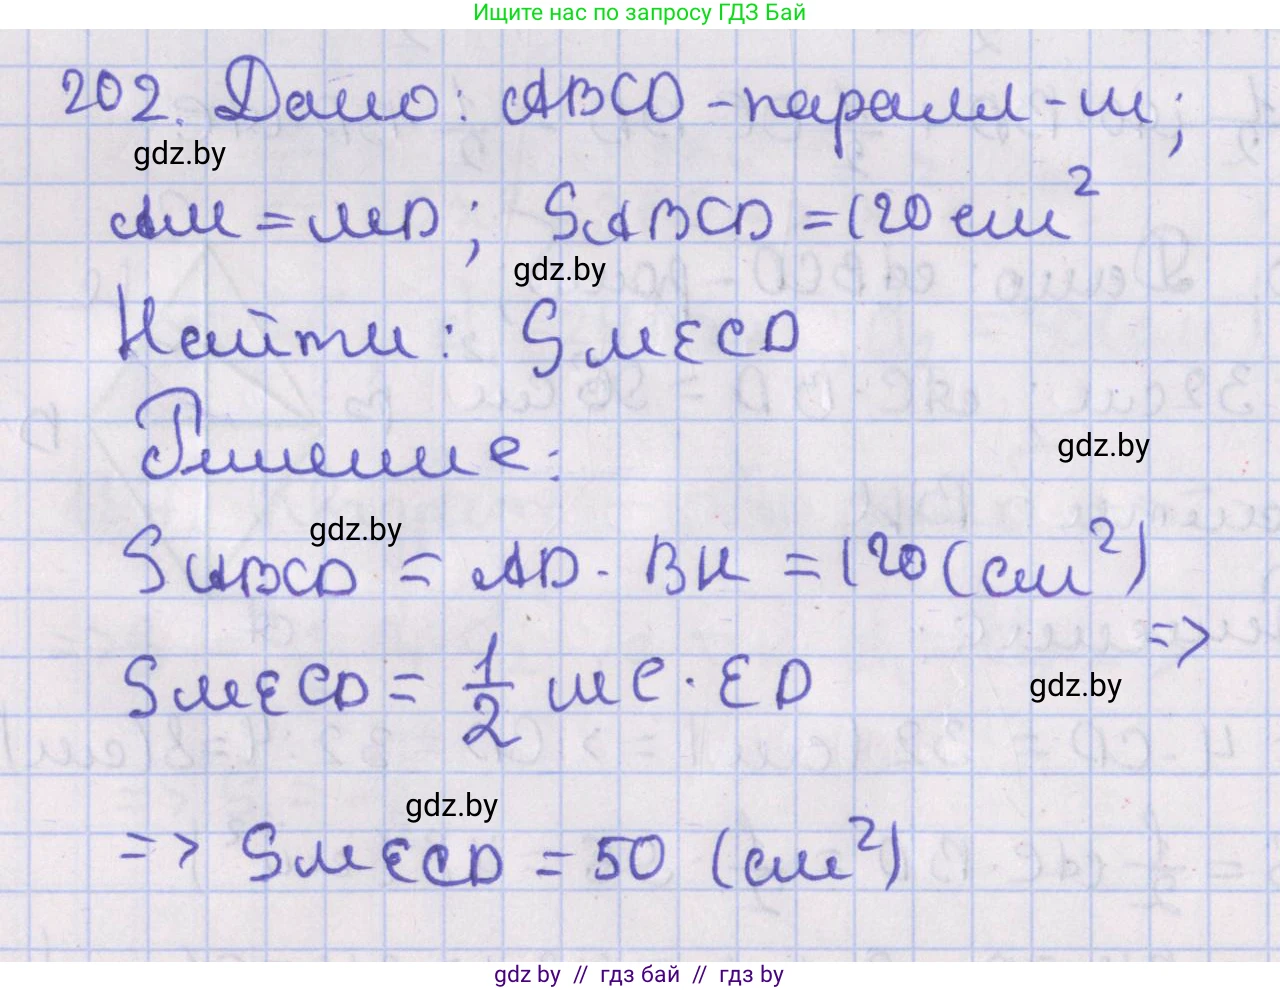 Ищите нас по запросу ГДЗ Бай
202. Дано: ABCD - паралл-м;
gdz.by
AM = MD; SABCD = 120 см²
gdz.by
Найти: SMECD
Решение:
gdz.by
gdz.by
SABCD = AD · BK = 120 (см²)
=>
SMECD = 1/2 MC · ED
gdz.by
gdz.by
=> SMECD = 50 (см²)
gdz by // гдз бай // гдз by